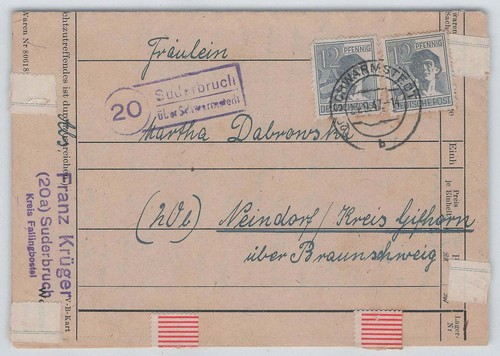 Fräulein
Martha Dabrowski
(20b) Neindorf/Kreis Gifhorn
über Braunschweig
20
Suderbruch
über Schwarmstedt
12 PFENNIG
12 PFENNIG
DEUTSCHE POST
SCHWARMSTEDT
b
Franz Krüger
(20a) Suderbruch
Kreis Fallingbostel
Waren Nr 80618
chtzutreffendes ist durch
reichen
v-B-Kart
Einh
Preis
je Einheit
Lager-
Nr